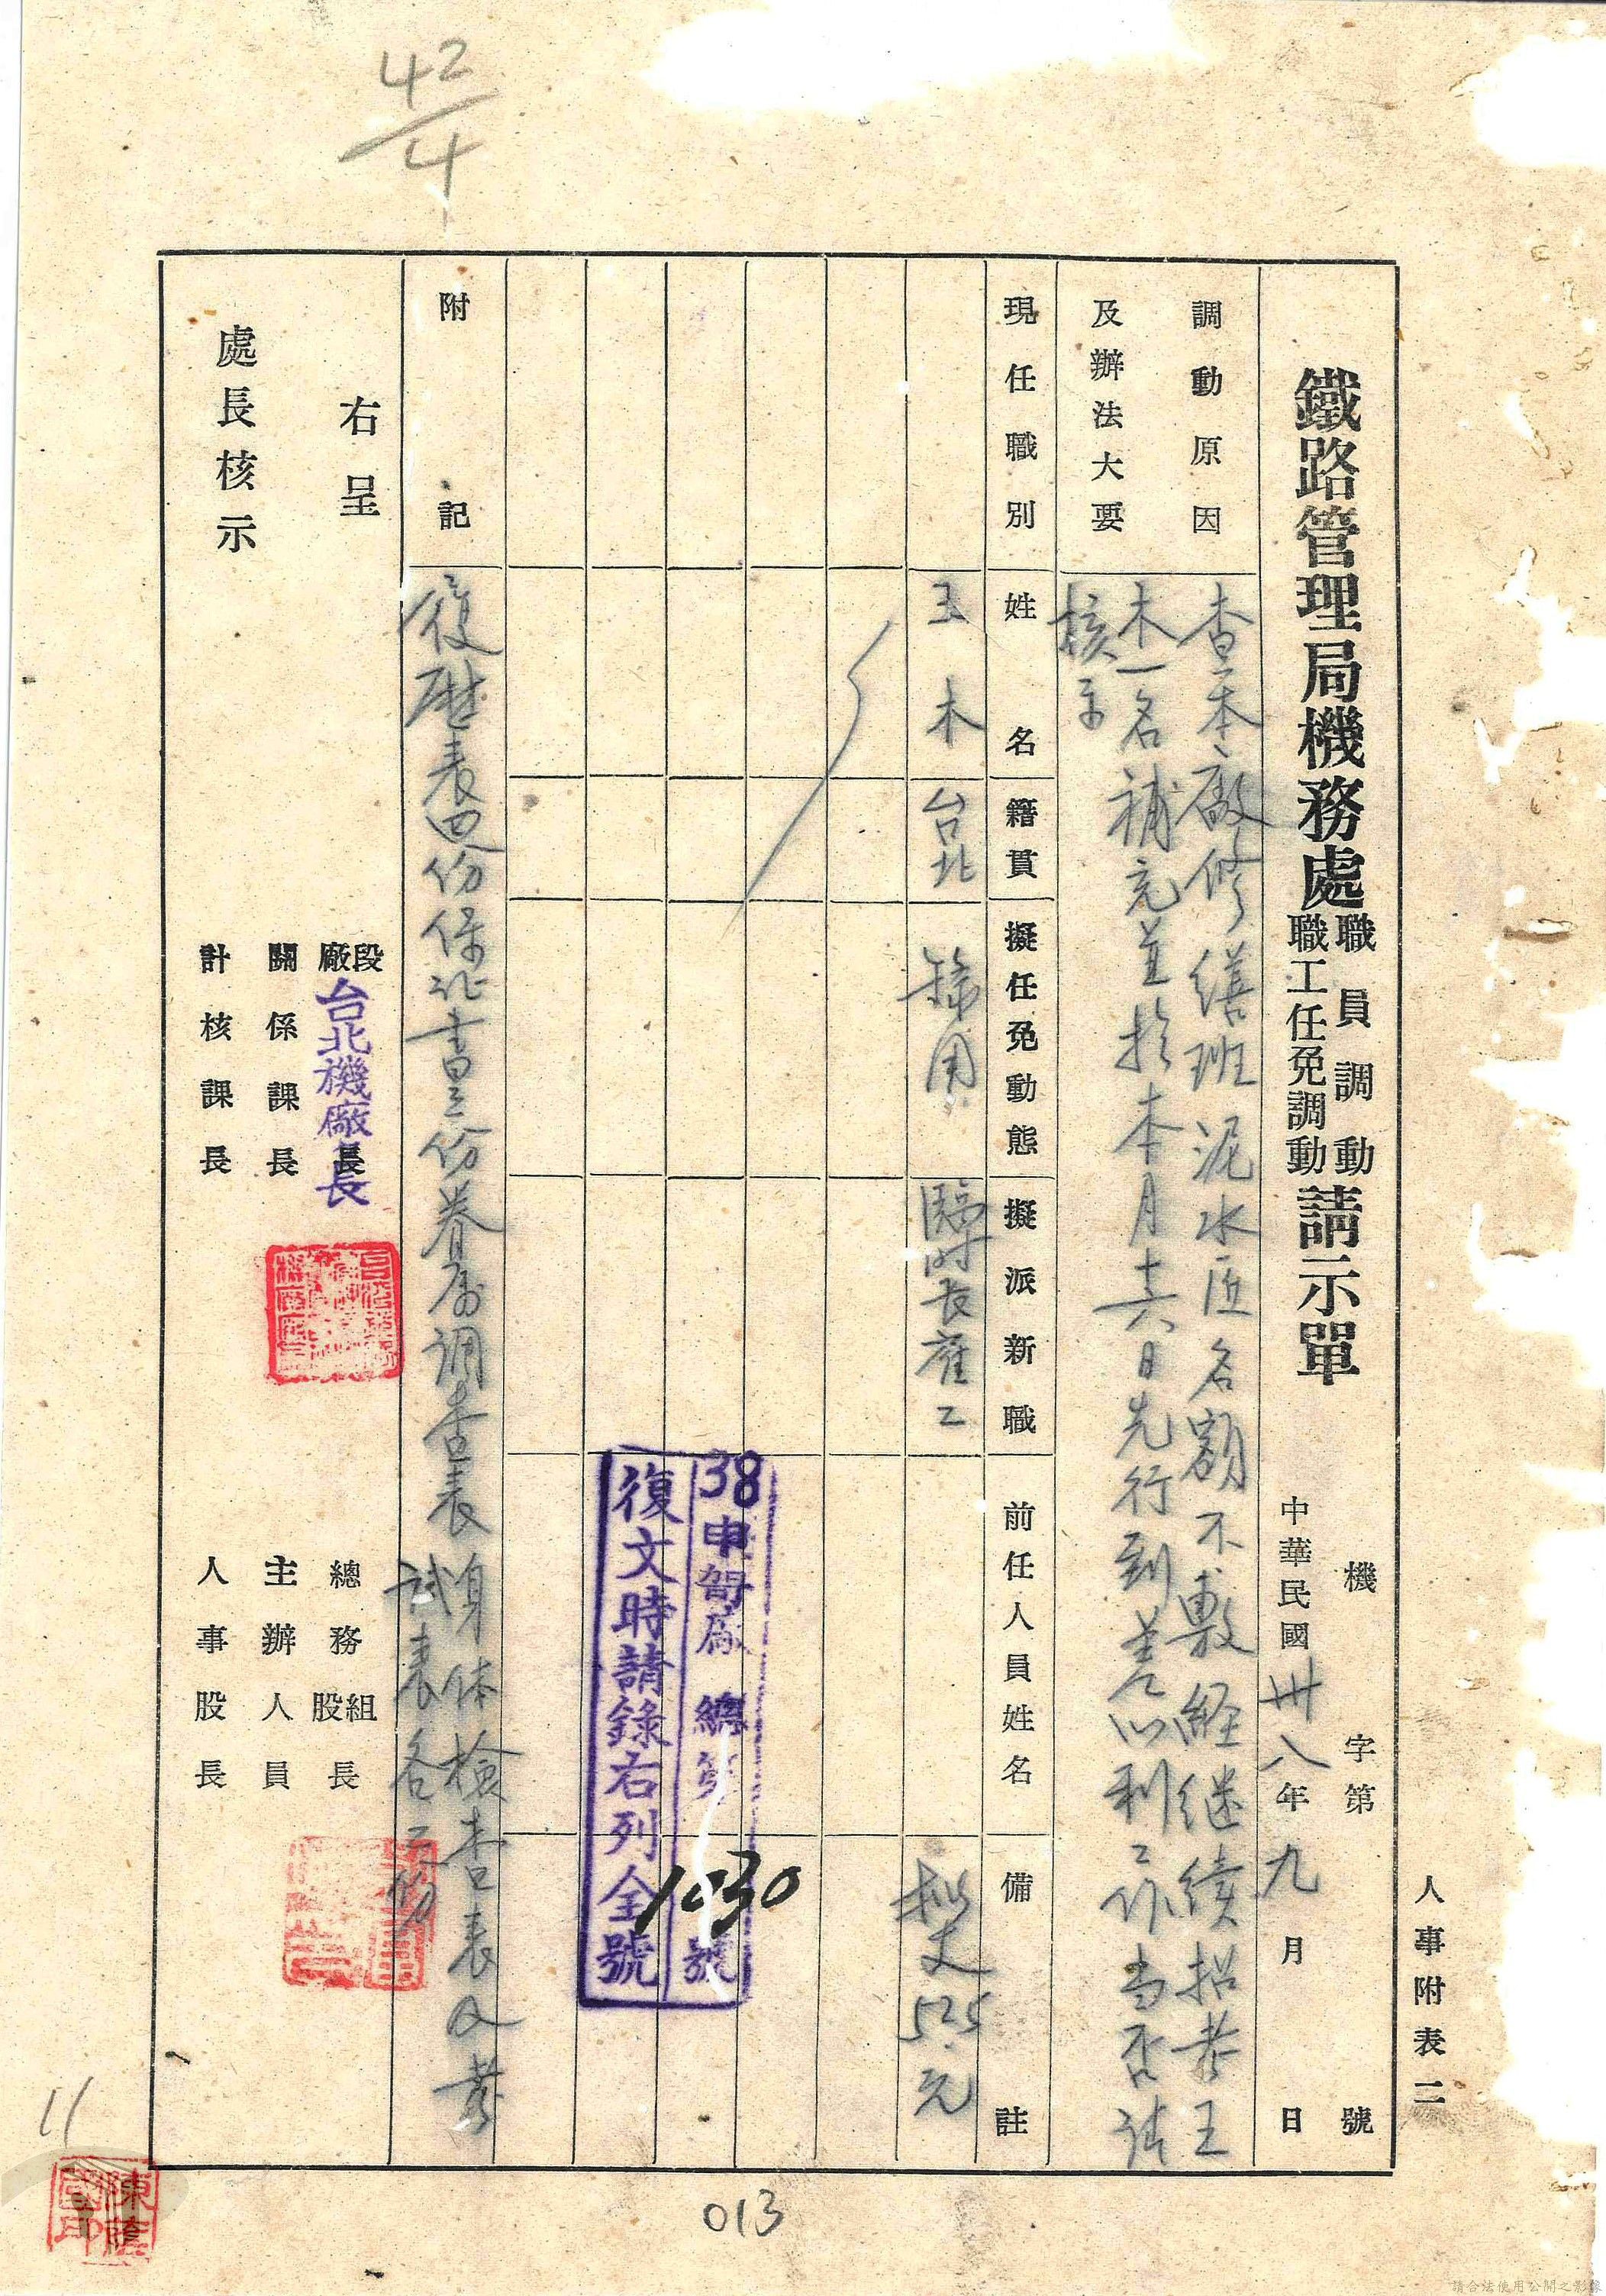 42/4
人事附表二
機 字第 號
鐵路管理局機務處職員調動職工任免調動請示單
中華民國卅八年九月 日
調動原因
及辦法大要
查本廠修繕班泥水匠名額不敷経継續招募王
木一名補充並擬本月十六日先行到差以利工作当否請
核示
現任職別
姓名
籍貫
擬任免動態
擬派新職
前任人員姓名
備註
王木
台北
錄用
臨時長雇工
擬支525元
38申 廠總第1030號
復文時請錄右列全號
附記
履歴表四份保証書三份眷属調查表身体檢查表及
試表各二份
右呈
處長核示
段廠長
台北機廠長
關係課長
計核課長
總務組股長
主辦人員
人事股長
11
陳蔭國印
013
請合法使用公開之影像